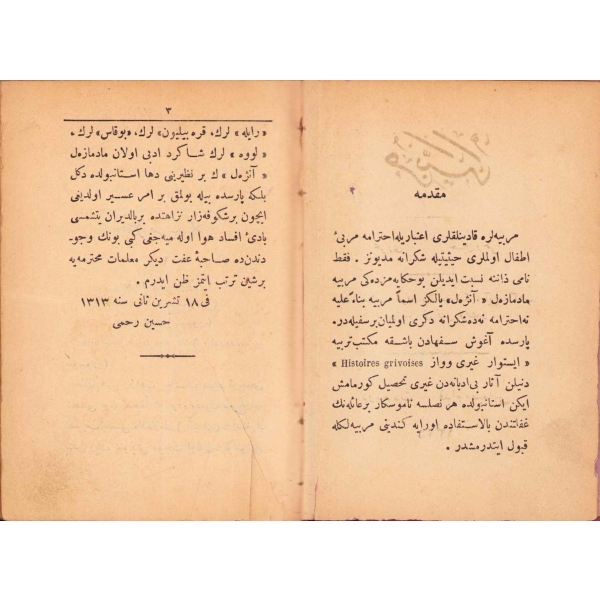 مربیه
مقدمه
مربیه‌لره قادینلقلری اعتباریله احترامه مربئ
اطفال اولملری حیثیتیله شکرانه مدیونز . فقط
نامی ذاتنه نسبت ایدیلن بوحکایه‌مزده‌کی مربیه
مادمازه‌ل « آنژه‌ل » یالکز اسماً مربیه بناءً علیه
نه احترامه نه‌ده شکرانه دکری اولمیان برسفیله‌در.
پارسده آغوش سفهادن باشقه مکتب تربیه
« ایستوار غیری وواز Histoires grivoises »
دنیلن آثار بی‌ادبانه‌دن غیری تحصیل کورمامش
ایکن استانبولده هر نصلسه ناموسکار برعائله‌نك
غفلتندن بالاستفاده اورایه کندینی مربیه‌لکله
قبول ایتدرمشدر .
٣
« رابله » لرك، قره بیلیون» لرك، «بوقاس» لرك،
« لووه » لرك شاکرد ادبی اولان مادمازه‌ل
« آنژه‌ل » ك بر نظیرینی دها استانبولده دکل
بلکه پارسده بیله بولمق بر امر عسیر اولدیغی
ایچون برشکوفه‌زار نزاهتده بربالدیران یتشمسی
بادئ افساد هوا اوله میه‌جغی کبی بونك وجو-
دندن‌ده صاحبهٔ عفت دیکر معلمات محترمه‌یه
برشین ترتب ایتمز ظن ایدرم .
فی ١٨ تشرین ثانی سنه ١٣١٣
حسین رحمی